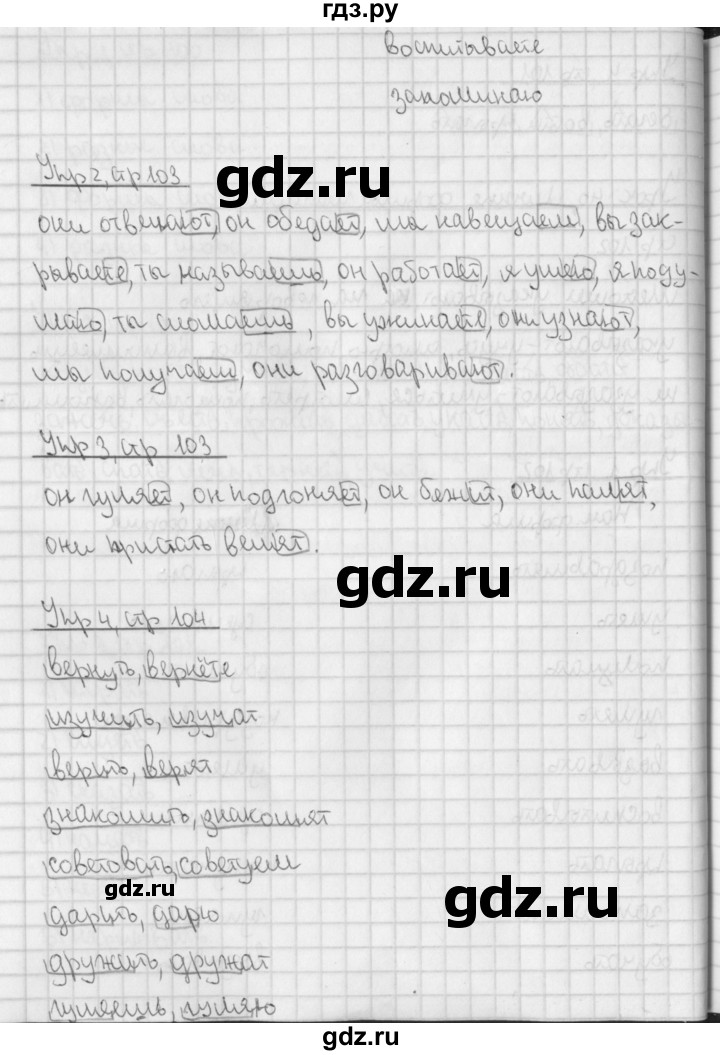 гдз.ру
воспитываете
запоминаю
Упр 2, стр 103
gdz.ru
они отвечают, он обедает, мы навещаем, вы зак-
рываете, ты называешь, он работает, я умею, я поду-
маю, ты сломаешь, вы ужинаете, они узнают,
gdz.ru
мы получаем, они разговаривают.
Упр 3, стр 103
он гуляет, он подгоняет, он бежит, они палят,
gdz.ru
они кристать велят.
gdz.ru
Упр 4, стр 104
вернуть, вернёте
изучить, изучат
верить, верят
знакомить, знакомят
советовать, советуем
gdz.ru
gdz.ru
дарить, дарю
дружить, дружат
гуляешь, гуляю
gdz.ru